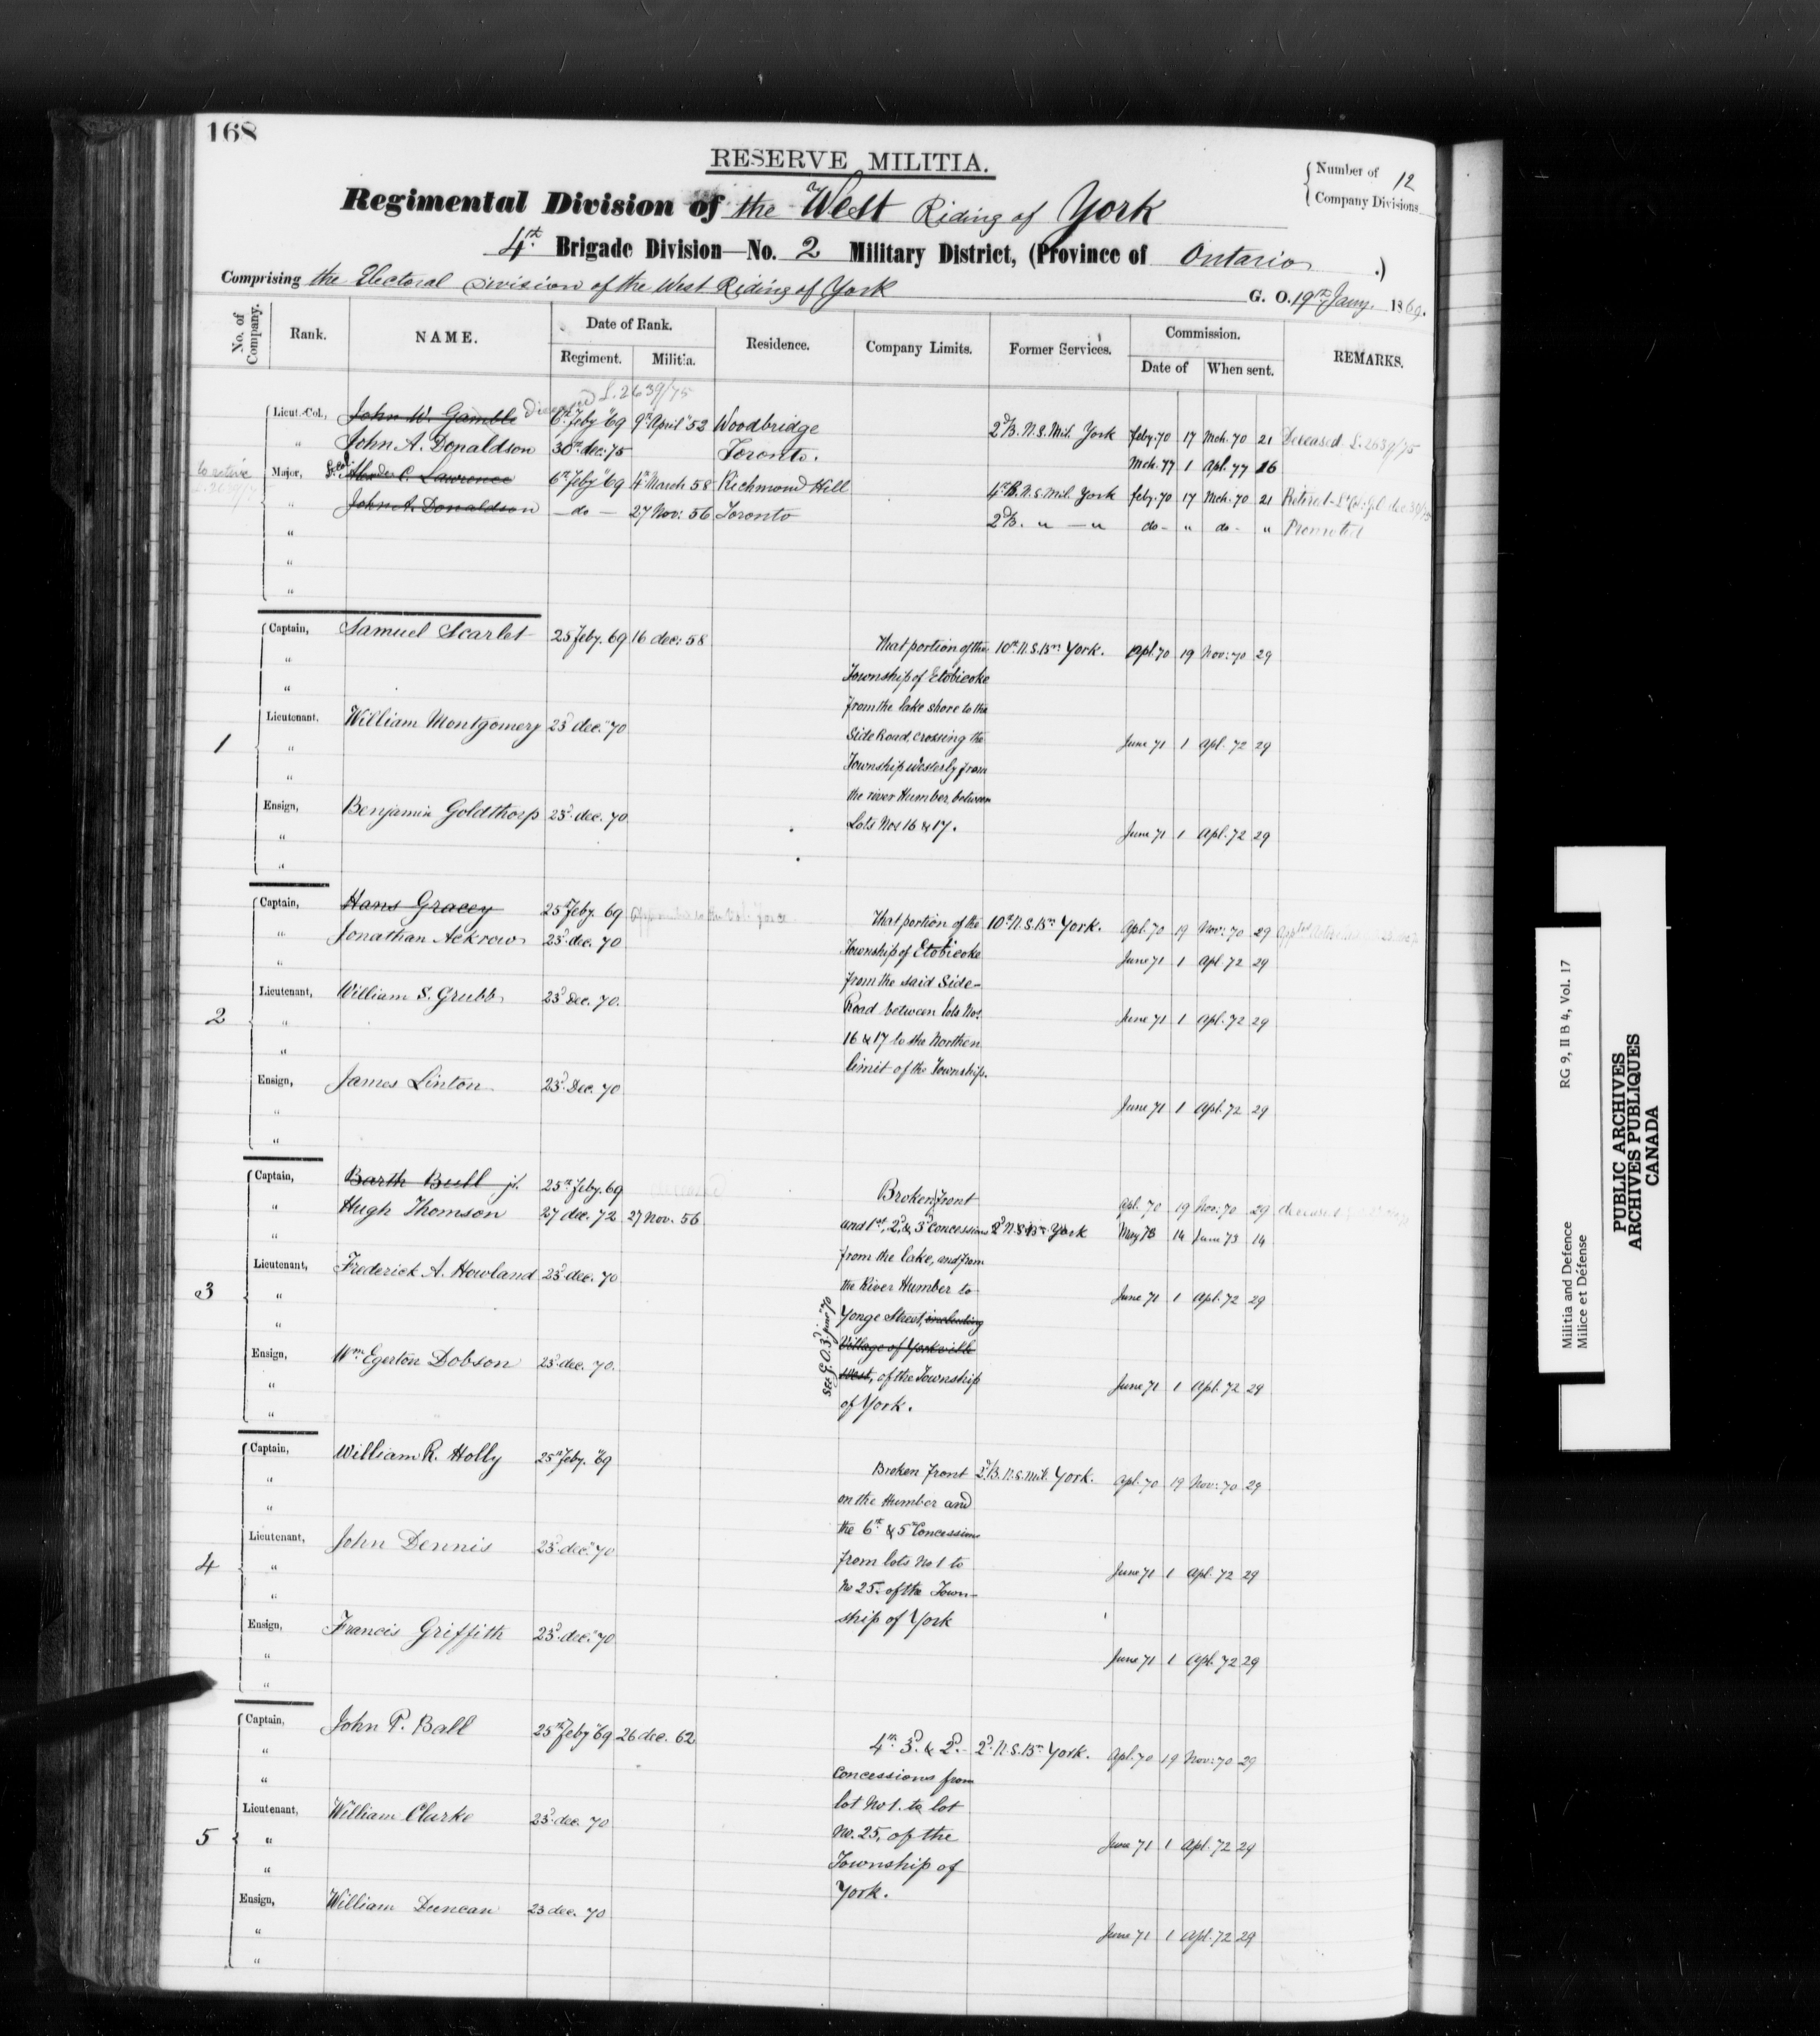 168
RESERVE MILITIA.
{ Number of 12
{ Company Divisions
Regimental Division of the West Riding of York
4th Brigade Division—No. 2 Military District, (Province of Ontario .)
Comprising the Electoral Division of the West Riding of York G. O. 19th Jany. 1869.
No. of Company. Rank. NAME. Date of Rank. Residence. Company Limits. Former Services. Commission. REMARKS.
Regiment. Militia. Date of When sent.
L. 2639/75
Lieut.-Col., John W. Gamble Deceased 6th Feby "69 9th April "52 Woodbridge 2d B. N. S. Mil. York feby. 70 17 Mch. 70 21 Deceased L. 2639/75
" John A. Donaldson 30th dec. 75 Toronto. Mch. 77 1 Apl. 77 16
Major, C. Lawrence 6th Feby "69 4th March 58 Richmond Hill 4th B. N. S. Mil. York feby. 70 17 Mch. 70 21 Retired
" John A. Donaldson — do — 27 Nov: 56 Toronto 2d B. " — " do - " do - " Promoted
"
"
"
Captain, Samuel Scarlet 25 Feby. 69 16 dec: 58 That portion of the 10th N. S. Bn. York. Apl. 70 19 Nov: 70 29
" Township of Etobicoke
" from the lake shore to the
Lieutenant, William Montgomery 23d dec. 70 Side Road, crossing the June 71 1 Apl. 72 29
1 " Township westerly from
" the river Humber, between
Ensign, Benjamin Goldthorp 23d dec. 70 Lots Nos 16 & 17. June 71 1 Apl. 72 29
"
"
Captain, Hans Gracey 25th Feby. 69 That portion of the 10th N. S. Bn. York. Apl. 70 19 Nov: 70 29
" Jonathan Ackrow 23d dec. 70 Township of Etobicoke June 71 1 Apl. 72 29
" from the said Side-
Lieutenant, William S. Grubb 23d Dec. 70. Road between lots Nos. June 71 1 Apl. 72 29
2 " 16 & 17 to the Northen
" limit of the Township.
Ensign, James Linton 23d Dec. 70 June 71 1 Apl. 72 29
"
"
Captain, Barth Bull jr. 25th Feby. 69 Broken front Apl. 70 19 Nov: 70 29 deceased
" Hugh Thomson 27 dec. 72 27 Nov. 56 and 1st, 2d, & 3d concessions 2d N. S. Bn. York May 73 14 June 73 14
" from the lake, and from
Lieutenant, Frederick A. Howland 23d dec. 70 the River Humber to June 71 1 Apl. 72 29
3 " Yonge Street, including
" Village of Yorkville
Ensign, Wm. Egerton Dobson 23d dec. 70. West, of the Township June 71 1 Apl. 72 29
" of York.
"
see G. O. 3d june "70
Captain, William R. Holly 25th Feby. "69 Broken front 2d B. N. S. Mil. York. Apl. 70 19 Nov: 70 29
" on the Humber and
" the 6th & 5th Concessions
Lieutenant, John Dennis 23d dec. 70 from lots No 1 to June 71 1 Apl. 72 29
4 " No 25. of the Town-
" ship of York
Ensign, Francis Griffith 23d dec. 70 June 71 1 Apl. 72 29
"
"
Captain, John P. Ball 25th Feby "69 26 dec. 62 4th 3d & 2d 2d N. S. Bn. York. Apl. 70 19 Nov: 70 29
" concessions from
" lot No 1. to lot
Lieutenant, William Clarke 23d dec. 70 No. 25, of the June 71 1 Apl. 72 29
5 " Township of
" York.
Ensign, William Duncan 23 dec. 70 June 71 1 Apl. 72 29
"
"
Militia and Defence RG 9, II B 4, Vol. 17
Milice et Défense
PUBLIC ARCHIVES
ARCHIVES PUBLIQUES
CANADA